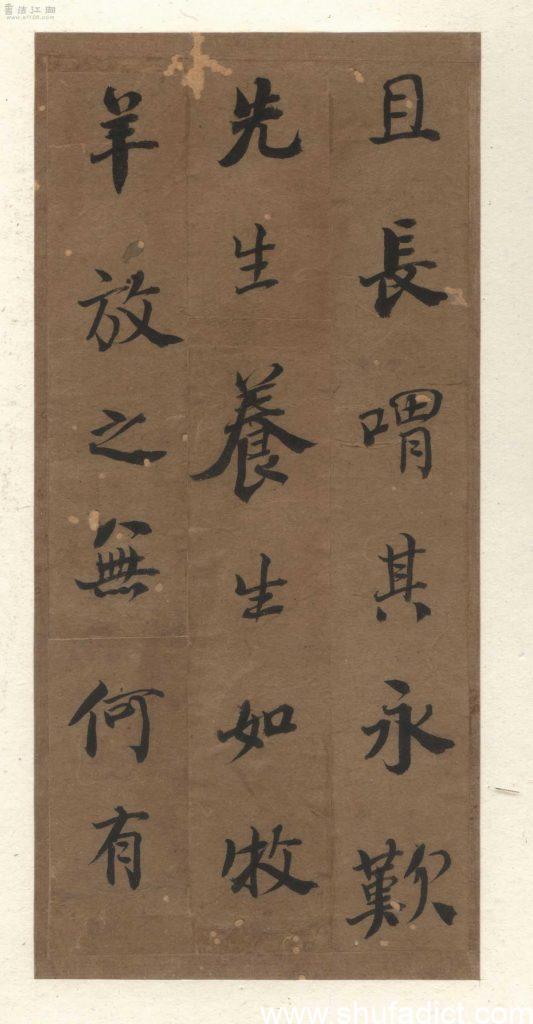 且長喟其永歎
先生養生如牧
羊放之無何有
書法江湖
www.shufadict.com